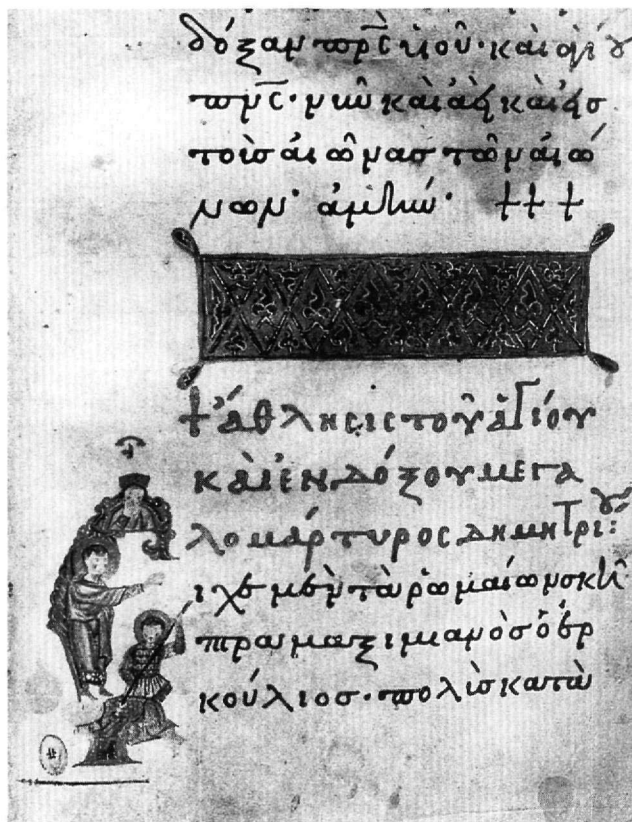 δόξαν πρ̅ς̅ ὑιοῦ· καὶ ἁγίου
πν̅ς̅· νῦν καὶ ἀεὶ καὶ εἰσ
τοὺσ αἰῶνασ τῶν αἰώ
νων· ἀμήν· +++
+ ἄθλησις τοῦ ἁγίου
καὶ ἐνδόξου μεγα
λομάρτυρος Δημητρίου:
Εἶχε μὲν τὰ ρωμαίων σκῆ
πτρα μαξιμιανὸσ ὁ ἑρ
κούλιοσ· πολὺσ κατὰ